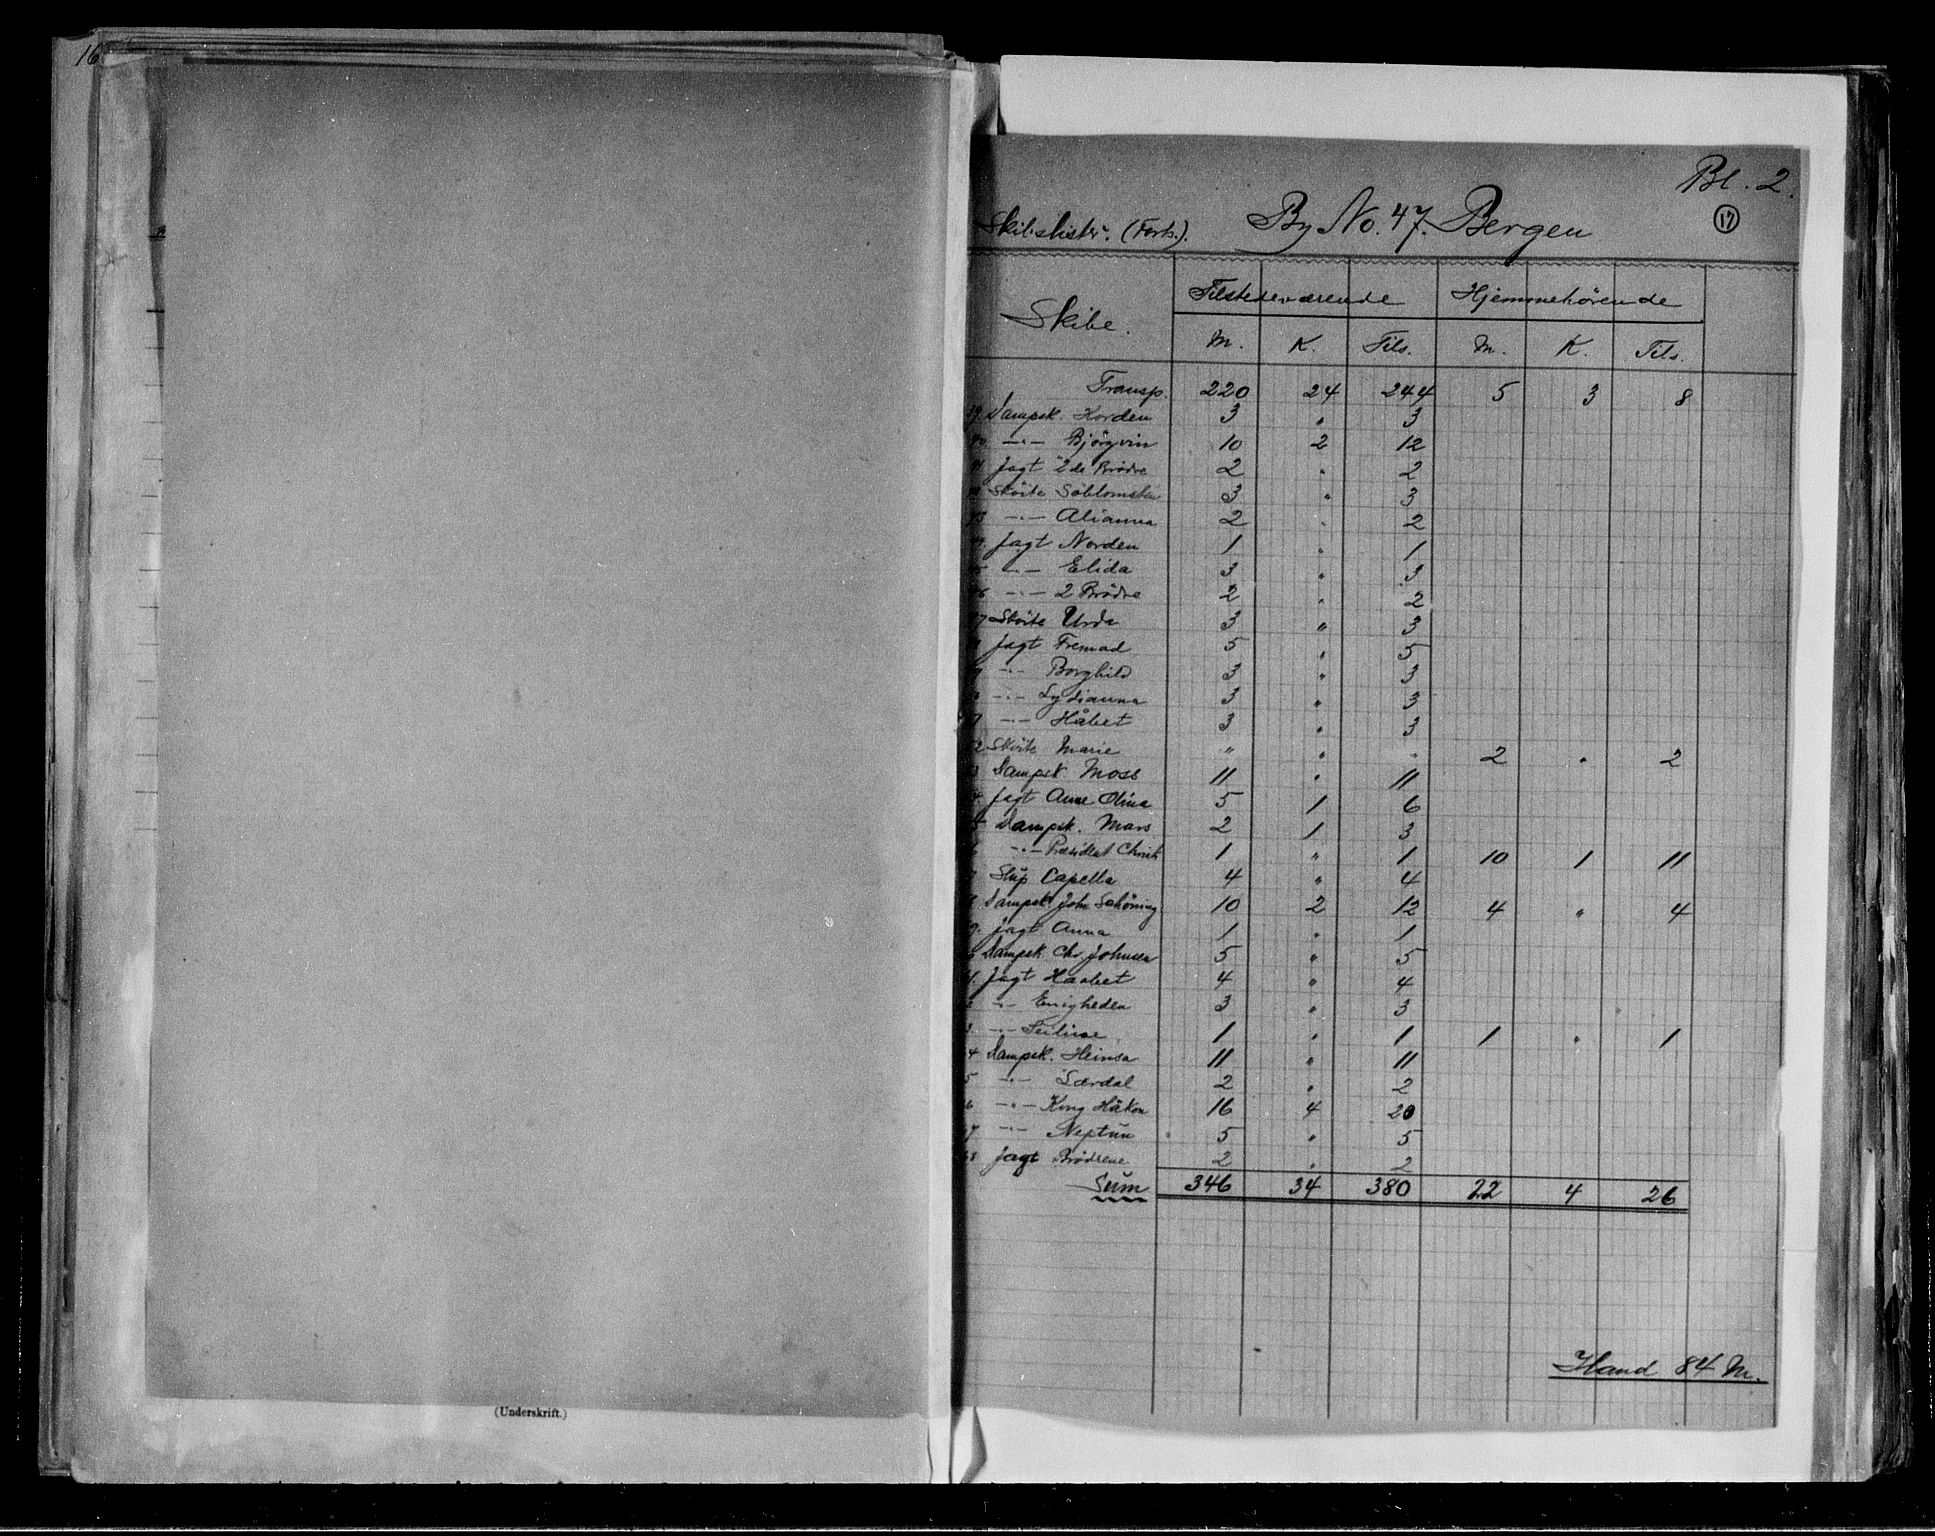 16
(Underskrift.)
Bl. 2.
17
Skibslister. (Forts.). By No. 47. Bergen
Skibe. Tilstedeværende Hjemmehörende
M. K. Tils. M. K. Tils.
Transp. 220 24 244 5 3 8
39. Dampsk. Horden 3 " 3
40. -"- Björgvin 10 2 12
41 Jagt 2de Brödre 2 " 2
Sköite Söblomsten 3 " 3
-"- Alianna 2 " 2
Jagt Norden 1 " 1
-"- Elida 3 " 3
46 -"- 2 Brödre 2 " 2
7 Sköite Urda 3 " 3
Jagt Fremad 5 " 5
-"- Borghild 3 " 3
-"- Lydianna 3 " 3
-"- Håbet 3 " 3
2 Sköite Marie " " " 2 " 2
3 Dampsk. Moss 11 " 11
4. Jagt Anne Olina 5 1 6
5 Dampsk. Mars 2 1 3
6 -"- Præsident Christi 1 " 1 10 1 11
7 Slup Capella 4 " 4
8 Dampsk John Schöning 10 2 12 4 " 4
9. Jagt Anna 1 " 1
Dampsk Chr. Johnsen 5 " 5
1. Jagt Haabet 4 " 4
2 -"- Enigheden 3 " 3
3. -"- 1 " 1 1 " 1
4 Dampsk. Heimsa 11 " 11
5 -"- Lærdal 2 " 2
6 -"- Kong Håkon 16 4 20
7 -"- Neptun 5 " 5
68 Jagt Brödrene 2 " 2
Sum 346 34 380 22 4 26
Hand 84 M.